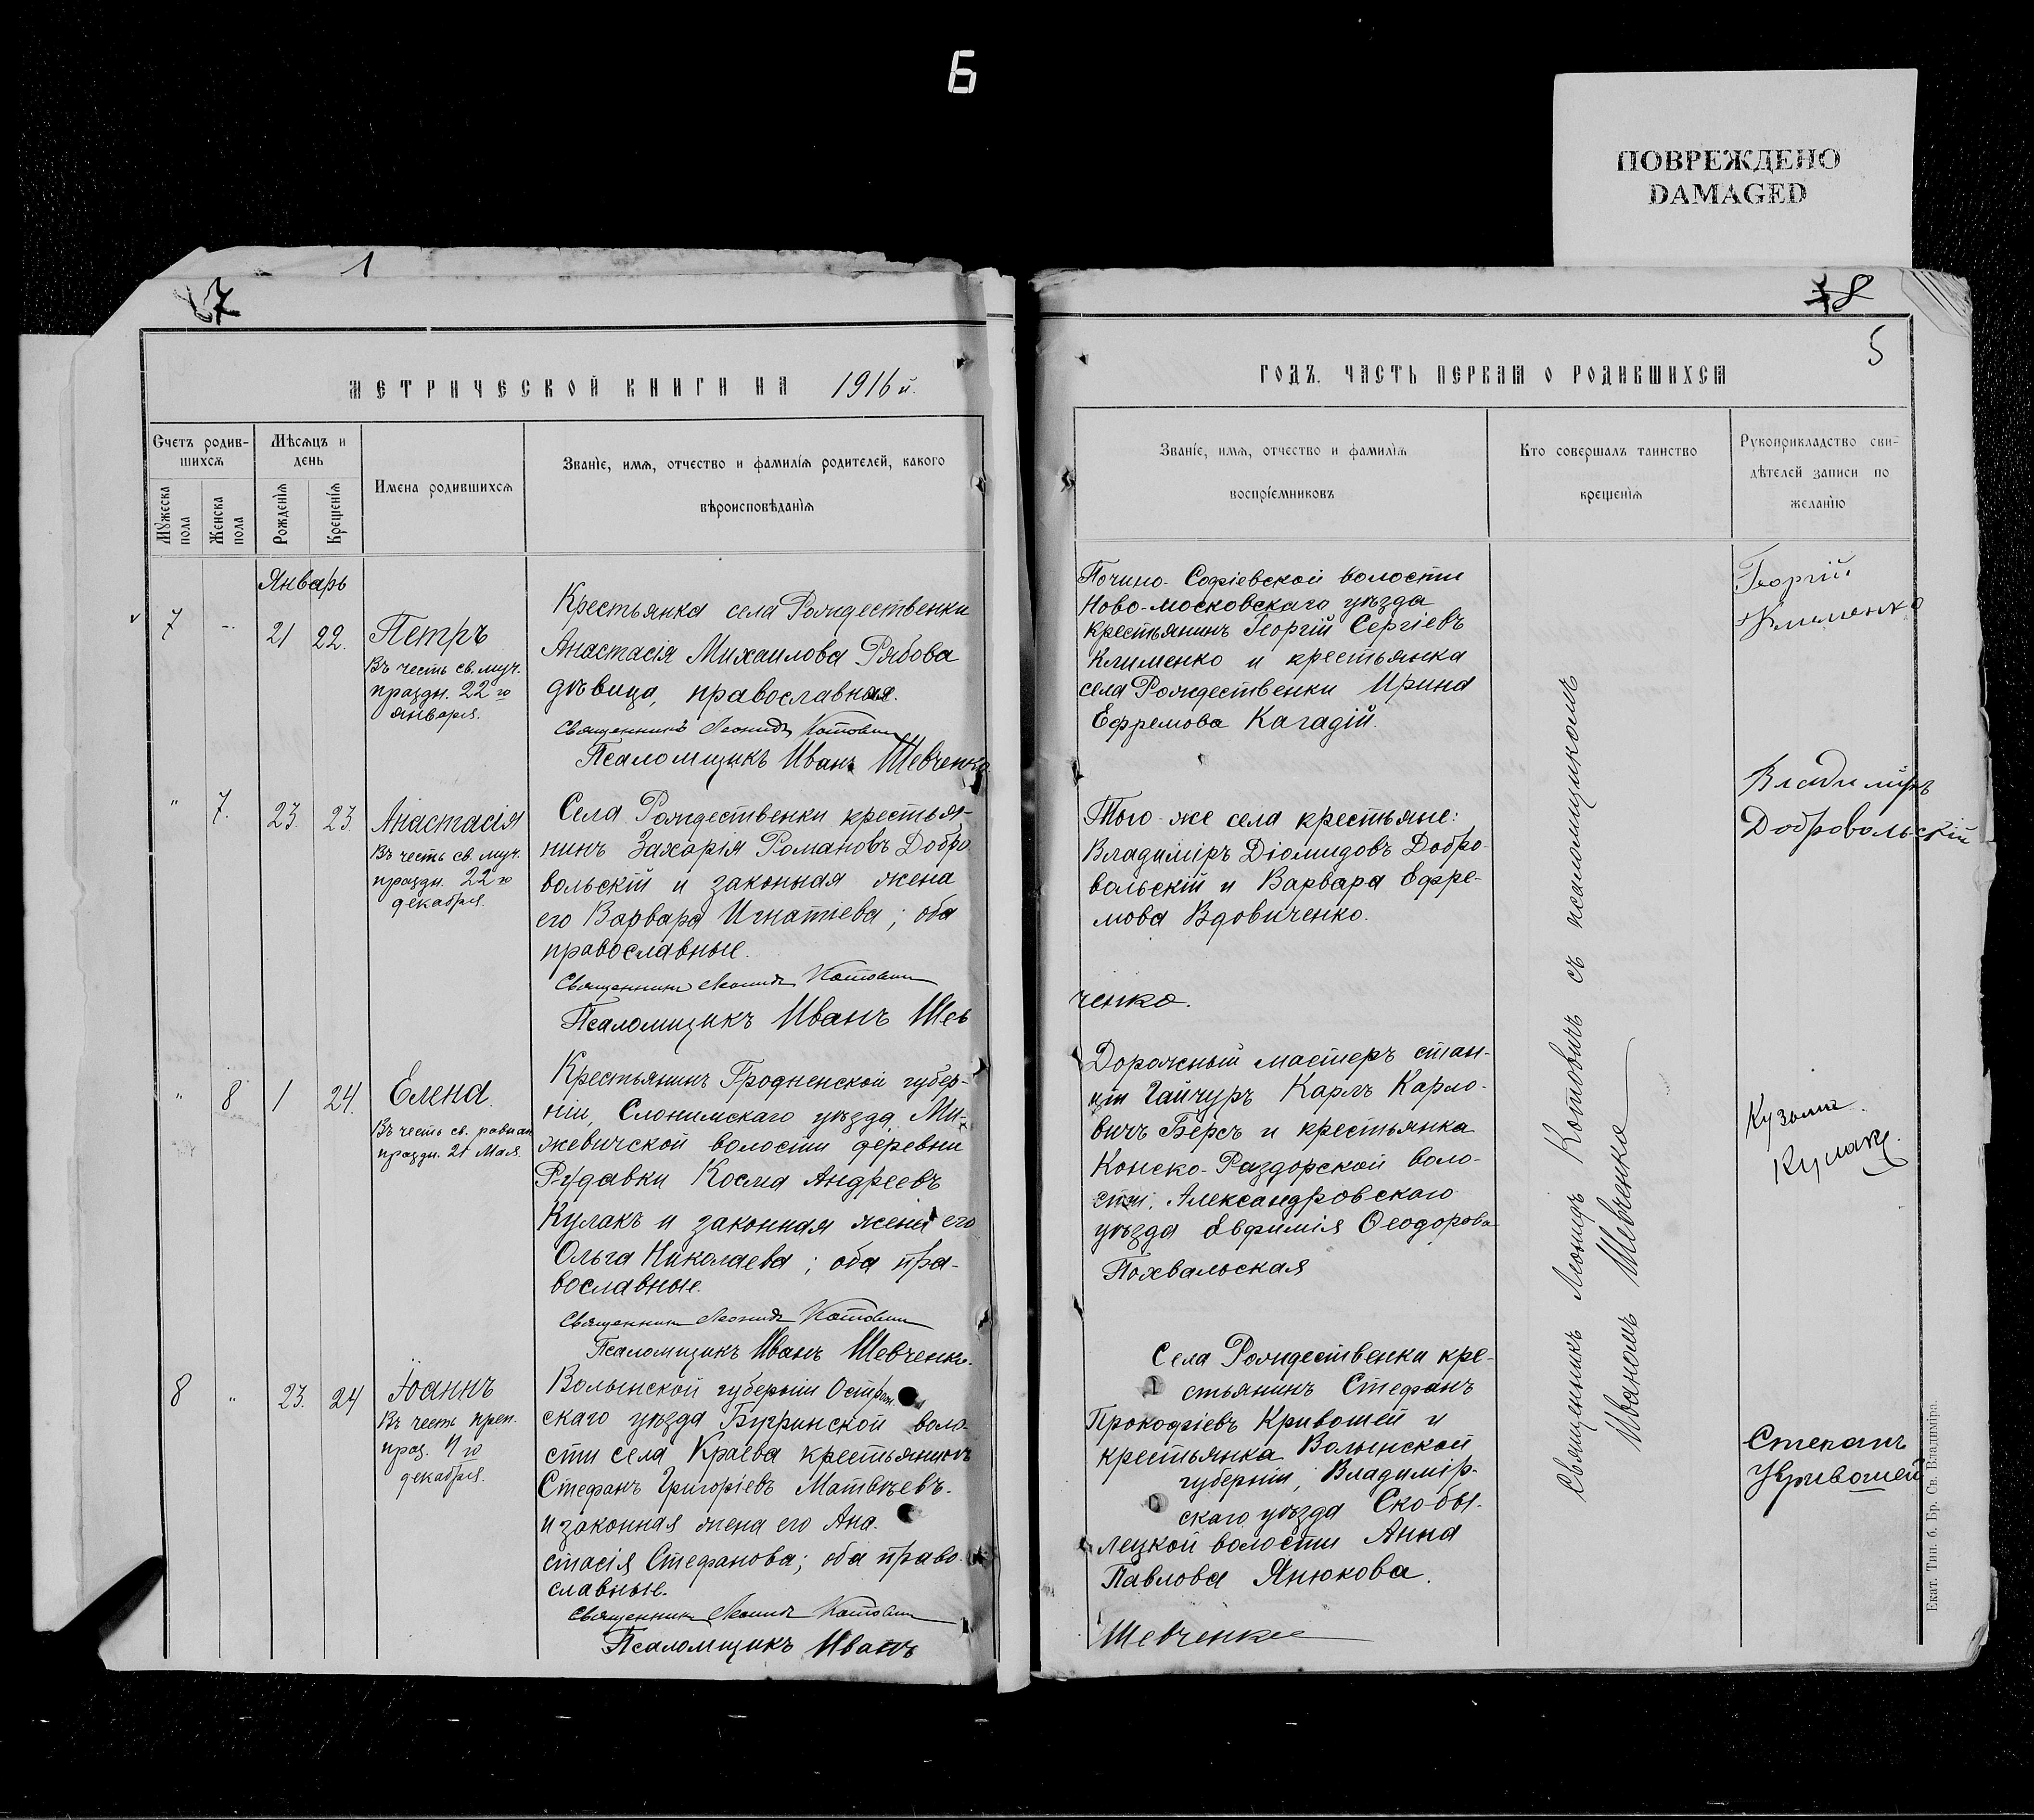 Б
ПОВРЕЖДЕНО
DAMAGED
1
7
8
5
МЕТРИЧЕСКОЙ КНИГИ НА 1916 й.
ГОДЪ. ЧАСТЬ ПЕРВАЯ О РОДИВШИХСЯ
Счетъ родив-
шихся
Мѣсяцъ и
день
Мужеска
пола
Женска
пола
Рожденія
Крещенія
Имена родившихся
Званіе, имя, отчество и фамилія родителей, какого
вѣроисповѣданія
Званіе, имя, отчество и фамилія
воспріемниковъ
Кто совершалъ таинство
крещенія
Рукоприкладство сви-
дѣтелей записи по
желанію
Январь
7 - 21 22. Петръ
Въ честь св. муч.
праздн. 22го
января.
Крестьянка села Рождественки
Анастасія Михаилова Рябова
дѣвица, православная.
Священникъ Леонидъ Котовичъ
Псаломщикъ Иванъ Шевченко
Почино-Софіевской волости
Ново-московскаго уѣзда
крестьянинъ Георгій Сергіевъ
Клименко и крестьянка
села Рождественки Ирина
Ефремова Кагадій.
Георгій
Клименко
" 7. 23. 23. Анастасія
Въ честь св. муч.
праздн. 22го
декабря.
Села Рождественки крестья-
нинъ Захарія Романовъ Добро
вольскій и законная жена
его Варвара Игнатіева; оба
православные.
Священникъ Леонидъ Котовичъ
Псаломщикъ Иванъ Шев
Того-же села крестьяне:
Владиміръ Діомидовъ Добро-
вольскій и Варвара Ефре-
мова Вдовиченко.
ченко.
Владиміръ
Добровольскій
" 8 1 24. Елена.
Въ честь св. равноап
праздн. 21 Мая.
Крестьянинъ Гродненской губер-
ніи, Слонимскаго уѣзда, Ми-
жевичской волости деревни
Рудавки Косма Андреевъ
Кулакъ и законная жена его
Ольга Николаева; оба пра-
вославные.
Священникъ Леонидъ Котовичъ
Псаломщикъ Иванъ Шевченко.
Дорожный мастеръ стан-
ціи Гайчуръ Карлъ Карло-
вичъ Берсъ и крестьянка
Конско-Раздорской воло-
сти, Александровскаго
уѣзда Евфимія Ѳеодорова
Похвальская
Кузьма
Кулакъ
8 " 23. 24 Іоаннъ
Въ честь преп.
праз. 4го
декабря.
Волынской губерніи Острож.
скаго уѣзда Бугринской воло-
сти села Краева крестьянинъ
Стефанъ Григоріевъ Матвѣевъ.
и законная жена его Ана-
стасія Стефанова; оба право-
славные.
Священникъ Леонидъ Котовичъ
Псаломщикъ Иванъ
Села Рождественки кре-
стьянинъ Стефанъ
Прокофіевъ Кривошей и
крестьянка Волынской
губерніи, Владимір-
скаго уѣзда Скобы-
лецкой волости Анна
Павлова Янюкова.
Шевченко
Степанъ
Кривошей
Священникъ Леонидъ Котовичъ съ псаломщикомъ
Иваномъ Шевченко
Екат. Тип. б. Бр. Св. Владиміра.